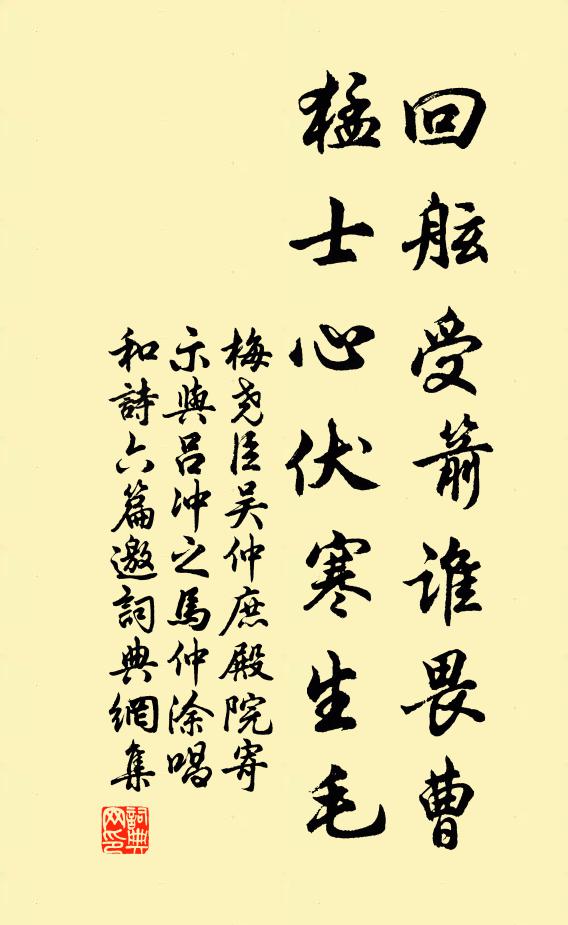 回舷受箭谁畏曹
猛士心伏寒生毛
梅尧臣吴仲庶殿院寄
示與吕冲之馬仲涂唱
和詩六篇邀詞典網集
詞典网印